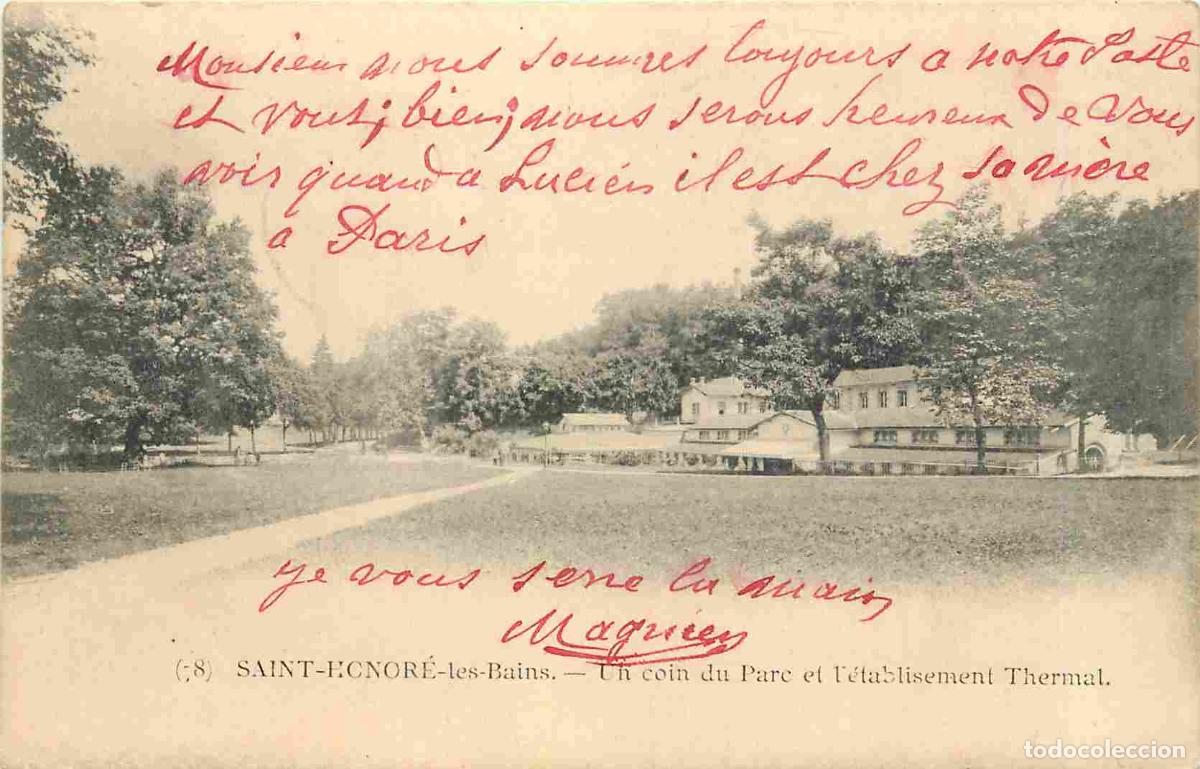 Monsieur nous sommes toujours a notre Poste
et vont; bien; nous serons heureux de vous
voir quand a Lucien il est chez sa mère
a Paris
je vous serre la main
Magnien
(58) SAINT-HONORÉ-les-Bains. — Un coin du Parc et l'établisement Thermal.
todocoleccion